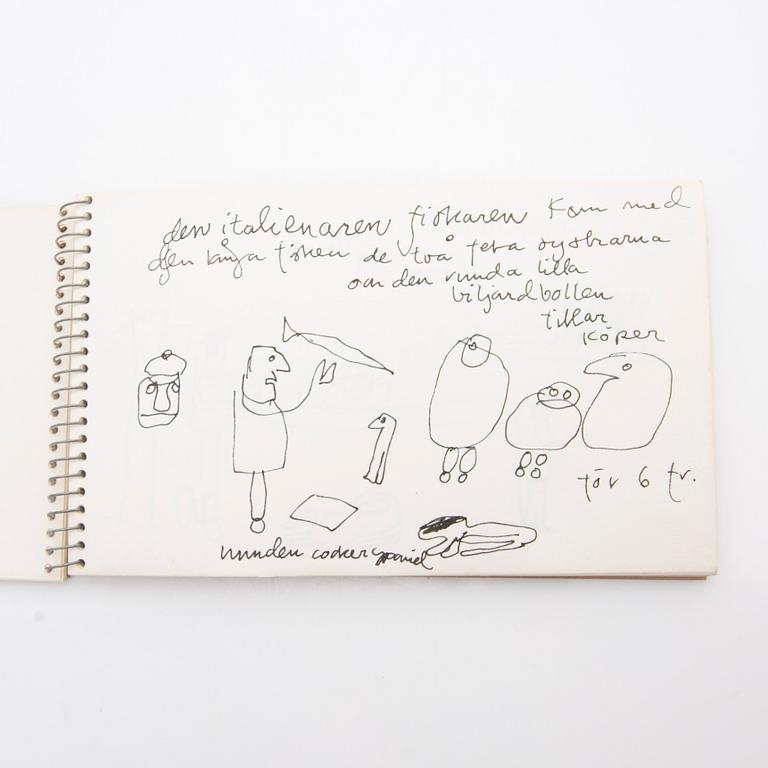 den italienaren fiskaren kom med
den långa fisken de två feta systrarna
och den runda lilla
biljardbollen
tillar
köper
för 6 fr.
hunden cockerspaniel